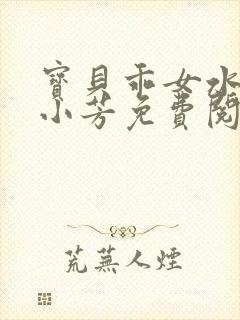 寶貝乖女水
小芳免費閱
荒蕪人煙